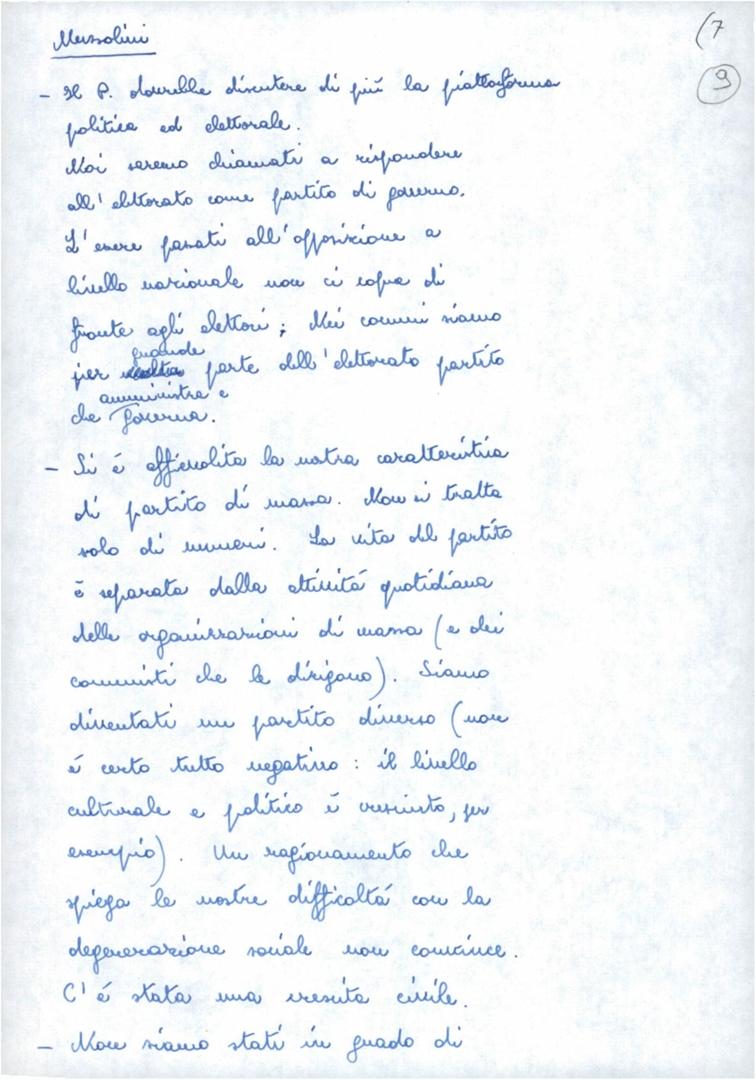 Mussolini
(7
9
- Il P. dovrebbe discutere di più la piattaforma
politica ed elettorale.
Noi saremo chiamati a rispondere
all'elettorato come partito di governo.
L'essere passati all'opposizione a
livello nazionale non ci copre di
fronte agli elettori; Nei comuni siamo
grande
per molta parte dell'elettorato partito
amministra e
che governa.
- Si è affievolita la nostra caratteristica
di partito di massa. Non si tratta
solo di numeri. La vita del partito
è separata dalla attività quotidiana
delle organizzazioni di massa (e dei
comunisti che le dirigono). Siamo
diventati un partito diverso (non
è certo tutto negativo: il livello
culturale e politico è cresciuto, per
esempio). Un ragionamento che
spiega le nostre difficoltà con la
degenerazione sociale non convince.
C'è stata una crescita civile.
- Non siamo stati in guado di